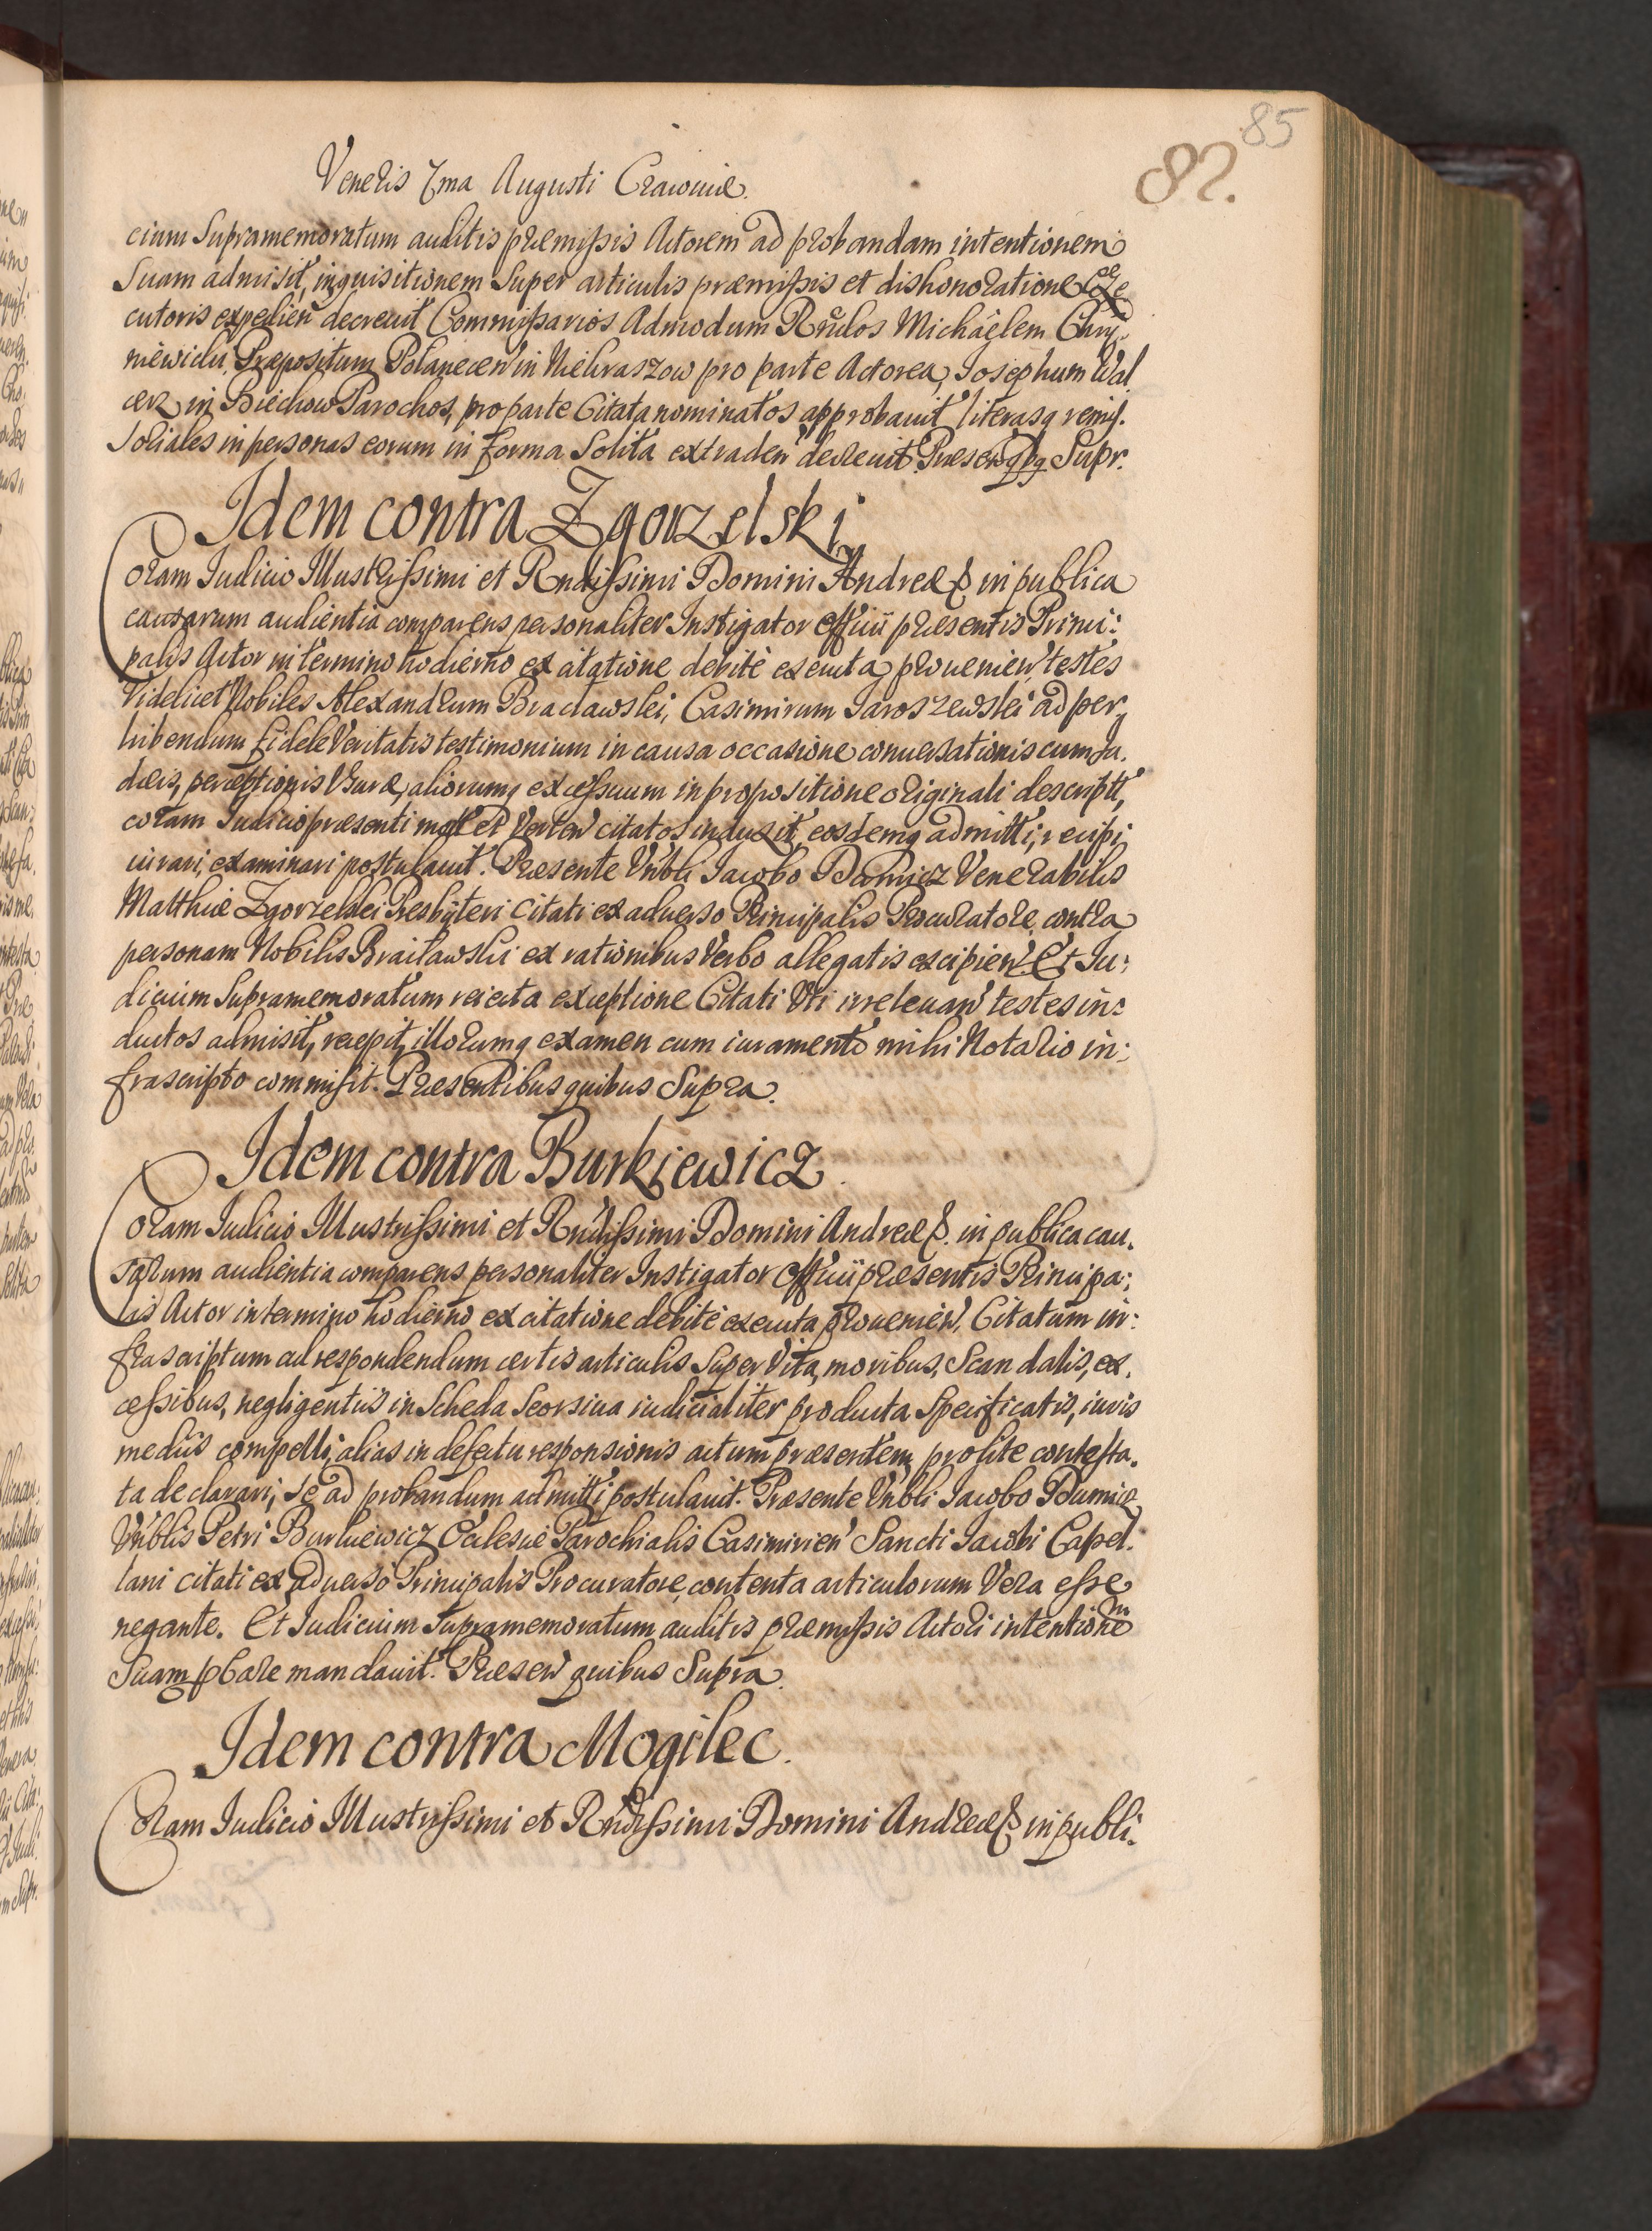 85
82.
Veneris 7ma Augusti Cracoviæ.
cium Supramemoratum auditis præmissis Actorem ad probandam intentionem
Suam admisit, inquisitionem Super articulis præmissis et dishonoratione Exe
cutoris expedien decrevit Commissarios Admodum Rndos Michaëlem Chry
niewicki, Præpositum Polanecen in Niekraszow pro parte Actorea, Josephum Wal
cerz in Biechow Parochos, pro parte Citata nominatos approbavit literasq remis.
soliales in personas eorum in forma Solita extraden decrevit. Præsen qbg Supr.
Idem contra Zgorzelski
Coram Judicio Illustrissimi et Rndissimi Domini Andreæ & in publica
causarum audientia comparens personaliter Instigator officii præsentis Princi:
palis Actor in termino hodierno ex citatione debitè executa provenien testes
Videlicet Nobiles Alexandrum Braclawski, Casimirum Jaroszewski ad per
hibendum fidele Veritatis testimonium in causa occasione conversationis cum Ju.
dæis, perceptionis Usuræ, aliorumq excessuum in propositione originali descriptt,
coram Judicio præsenti mot et Verten citatos induxit, eosdemq admitti, recipi,
iurari, examinari postulavit. Præsente Vnbli Jacobo Dumicz Venerabilis
Matthiæ Zgorzelski Presbyteri Citati ex adverso Principalis Procuratore, contra
personam Nobilis Braclawski ex rationibus Verbo allegatis excipien. Et Ju:
dicium Supramemoratum reiecta exceptione Citati Uti irrelevan testes in:
ductos admisit, recepit, illorumq examen cum iuramento mihi Notario in:
frascripto commisit. Præsentibus quibus Supra.
Idem contra Burkiewicz
Coram Judicio Illustrissimi et Rndissimi Domini Andreæ &. in publica cau.
sarum audientia comparens personaliter Instigator officii præsentis Principa:
lis Actor in termino hodierno ex citatione debitè executa provenien. Citatum in:
frascriptum ad respondendum certis articulis Super Vita, moribus, Scandalis, ex.
cessibus, negligentiis in Scheda Seorsiva iudicialiter producta Specificatis, iuris
mediis compelli, alias in defectu responsionis actum præsentem pro lite contesta.
ta declarari, Se ad probandum admitti postulavit. Præsente Vnbli Jacobo Dumicz
Vnblis Petri Burkiewicz Ecclesiæ Parochialis Casimirien Sancti Jacobi Capel.
lani citati ex adverso Principalis Procuratore, contenta articulorum Vera esse
negante. Et Judicium Supramemoratum auditis præmissis Actori intentionem
Suam pbare mandavit. Præsen quibus Supra.
Idem contra Mogilec.
Coram Judicio Illustrissimi et Rndissimi Domini Andreæ & in publi.